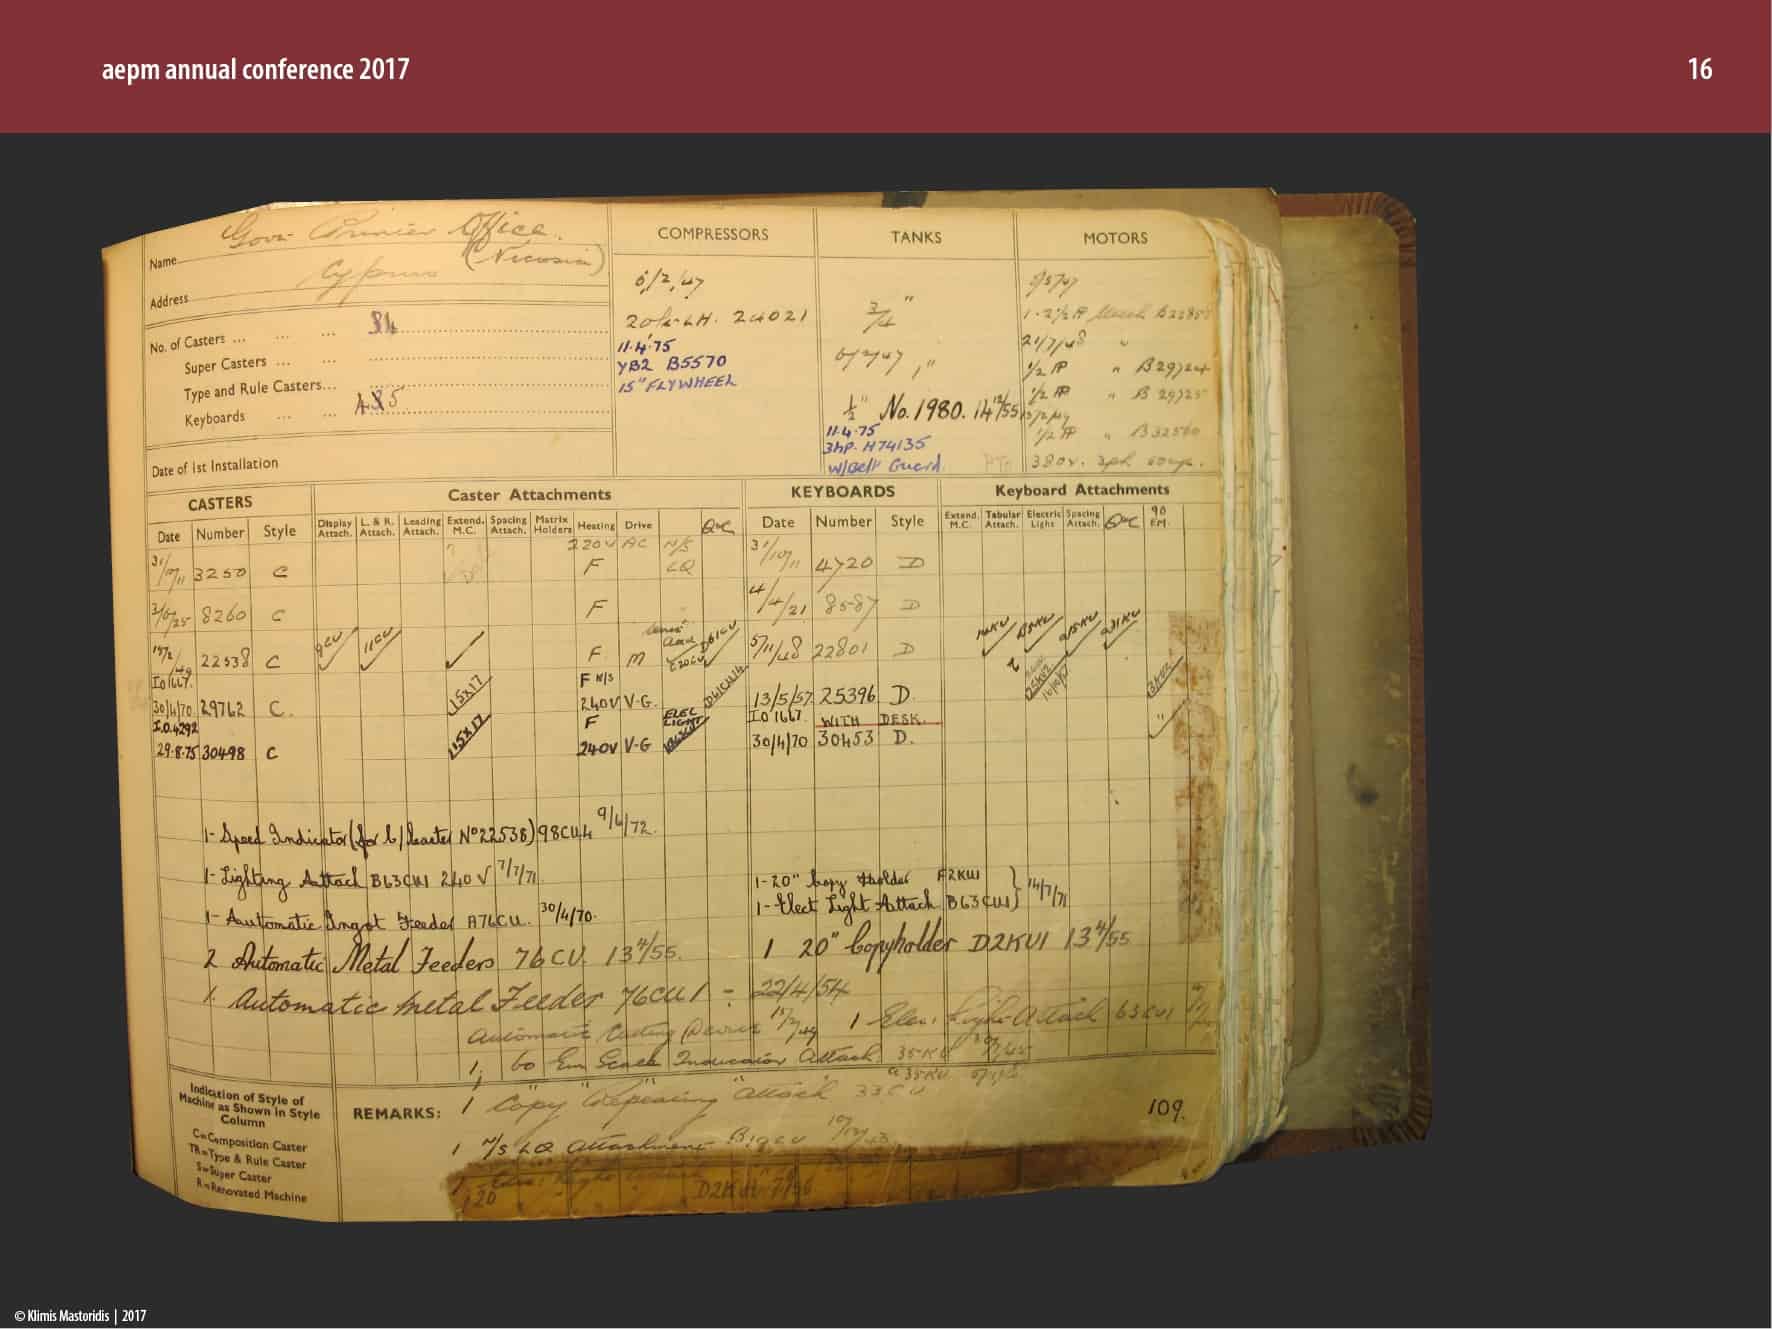 aepm annual conference 2017
16
Name Govt Printer Office.
(Nicosia)
Address Cyprus
No. of Casters ... ... ...
Super Casters ... ...
Type and Rule Casters...
Keyboards ... ...
Date of 1st Installation
COMPRESSORS
6/2/47
24021
11.4.75
YB2 B5570
15" FLYWHEEL
TANKS
3/4"
6/2/47 "
1/2" No. 1980. 14 12/55
11.4.75
3hp. H74135
W/Belt Guard.
PTO
MOTORS
21/7/48 "
1/2 HP " B29724
1/2 HP " B 29725
1/2 HP " B32560
380v. 3ph 50cyc.
CASTERS
Caster Attachments
KEYBOARDS
Keyboard Attachments
Date Number Style Display Attach. L. & R. Attach. Leading Attach. Extend. M.C. Spacing Attach. Matrix Holders Heating Drive Date Number Style Extend. M.C. Tabular Attach. Electric Light Spacing Attach. 90 EM.
220V AC N/S
31/10/11 3250 C F LQ 31/10/11 4720 D
8260 C F 4/4/21 8587 D
22538 C 9CU 11CU F M 5/11/48 22801 D
IO1667. F N/S
30/4/70 29762 C. 15X17 240V V-G. 13/5/57 25396 D.
I.O.4292 F ELEC LIGHT IO1667. WITH DESK.
29.8.75 30498 C 15X17 240V V-G 30/4/70 30453 D.
1- Speed Indicator (for C/Caster No 22538) 98CU4 9/6/72.
1- Lighting Attach B63CU1 240V 7/7/71
1-20" Copy Holder F2KU1
1- Elect Light Attach B63CU1 } 14/7/71
1- Automatic Ingot Feeder A76CU. 30/4/70.
2 Automatic Metal Feeders 76CU. 13 4/55.
1 20" Copyholder D2KU1 13 4/55
1. Automatic Metal Feeder 76CU1 - 22/4/54
1 Elec: Light Attach 63CU1
1, 60 Em Scale Indicator Attach 35KU
Indication of Style of
Machine as Shown in Style
Column
C=Composition Caster
TR=Type & Rule Caster
S=Super Caster
R=Renovated Machine
REMARKS: 1 Copy Repeating Attach 33CU
109.
1 N/S LQ Attachment B19CU
© Klimis Mastoridis | 2017